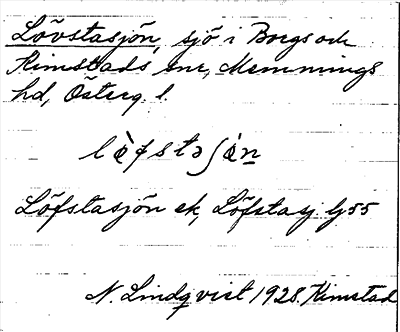 Lövstasjön, sjö i Borgs och
Kimstads snr, Memmings
hd, Österg. l.
Löfstasjön ek, Löfstasj. Gj 55
N. Lindqvist 1928. Kimstad